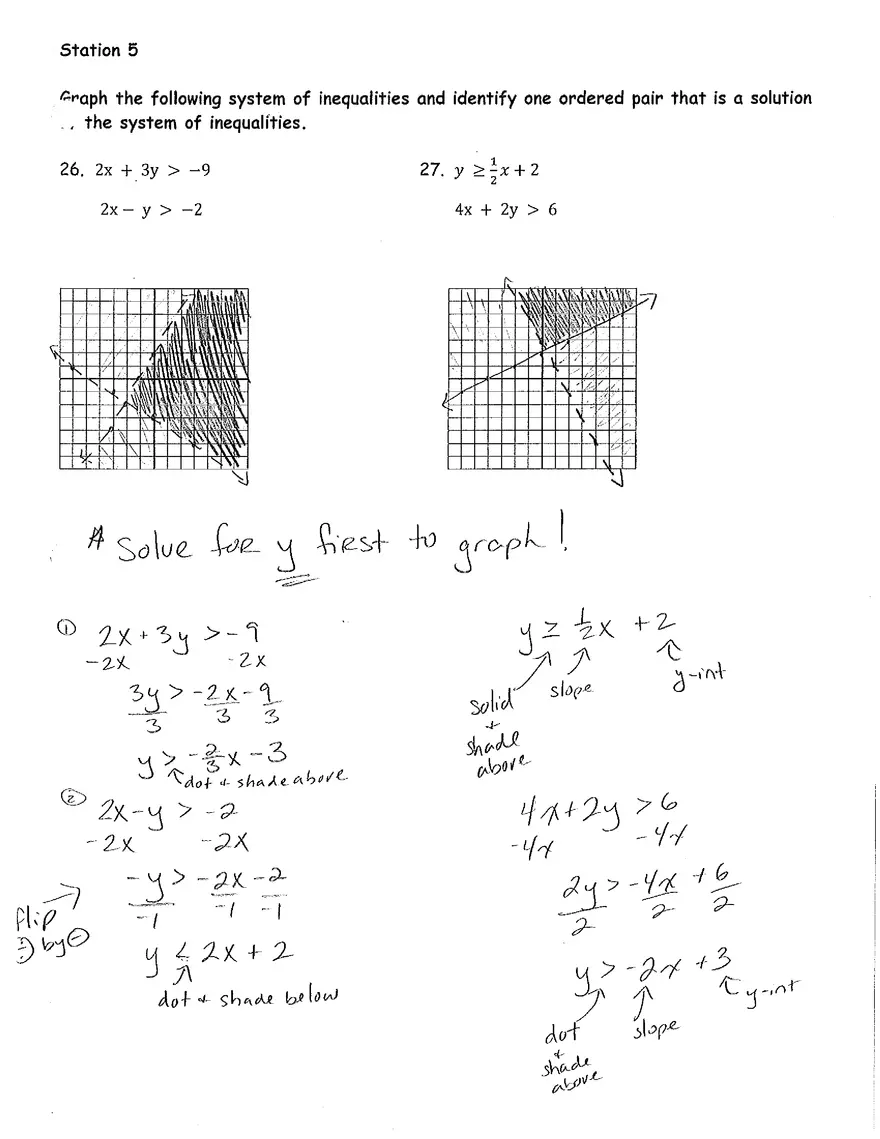 Station 5
Graph the following system of inequalities and identify one ordered pair that is a solution
the system of inequalities.
26. 2x + 3y > −9
2x − y > −2
27. y ≥ 1/2 x + 2
4x + 2y > 6
* Solve for y first to graph!
① 2x + 3y > -9
-2x -2x
3y > -2x - 9
3 3 3
y > -2/3 x - 3
dot + shade above
② 2x - y > -2
-2x -2x
-y > -2x - 2
-1 -1 -1
flip
by ⊖
y < 2x + 2
dot + shade below
y ≥ 1/2 x + 2
solid
+
shade
above
slope
y-int
4x + 2y > 6
-4x -4x
2y > -4x + 6
2 2 2
y > -2x + 3
dot
+
shade
above
slope
y-int